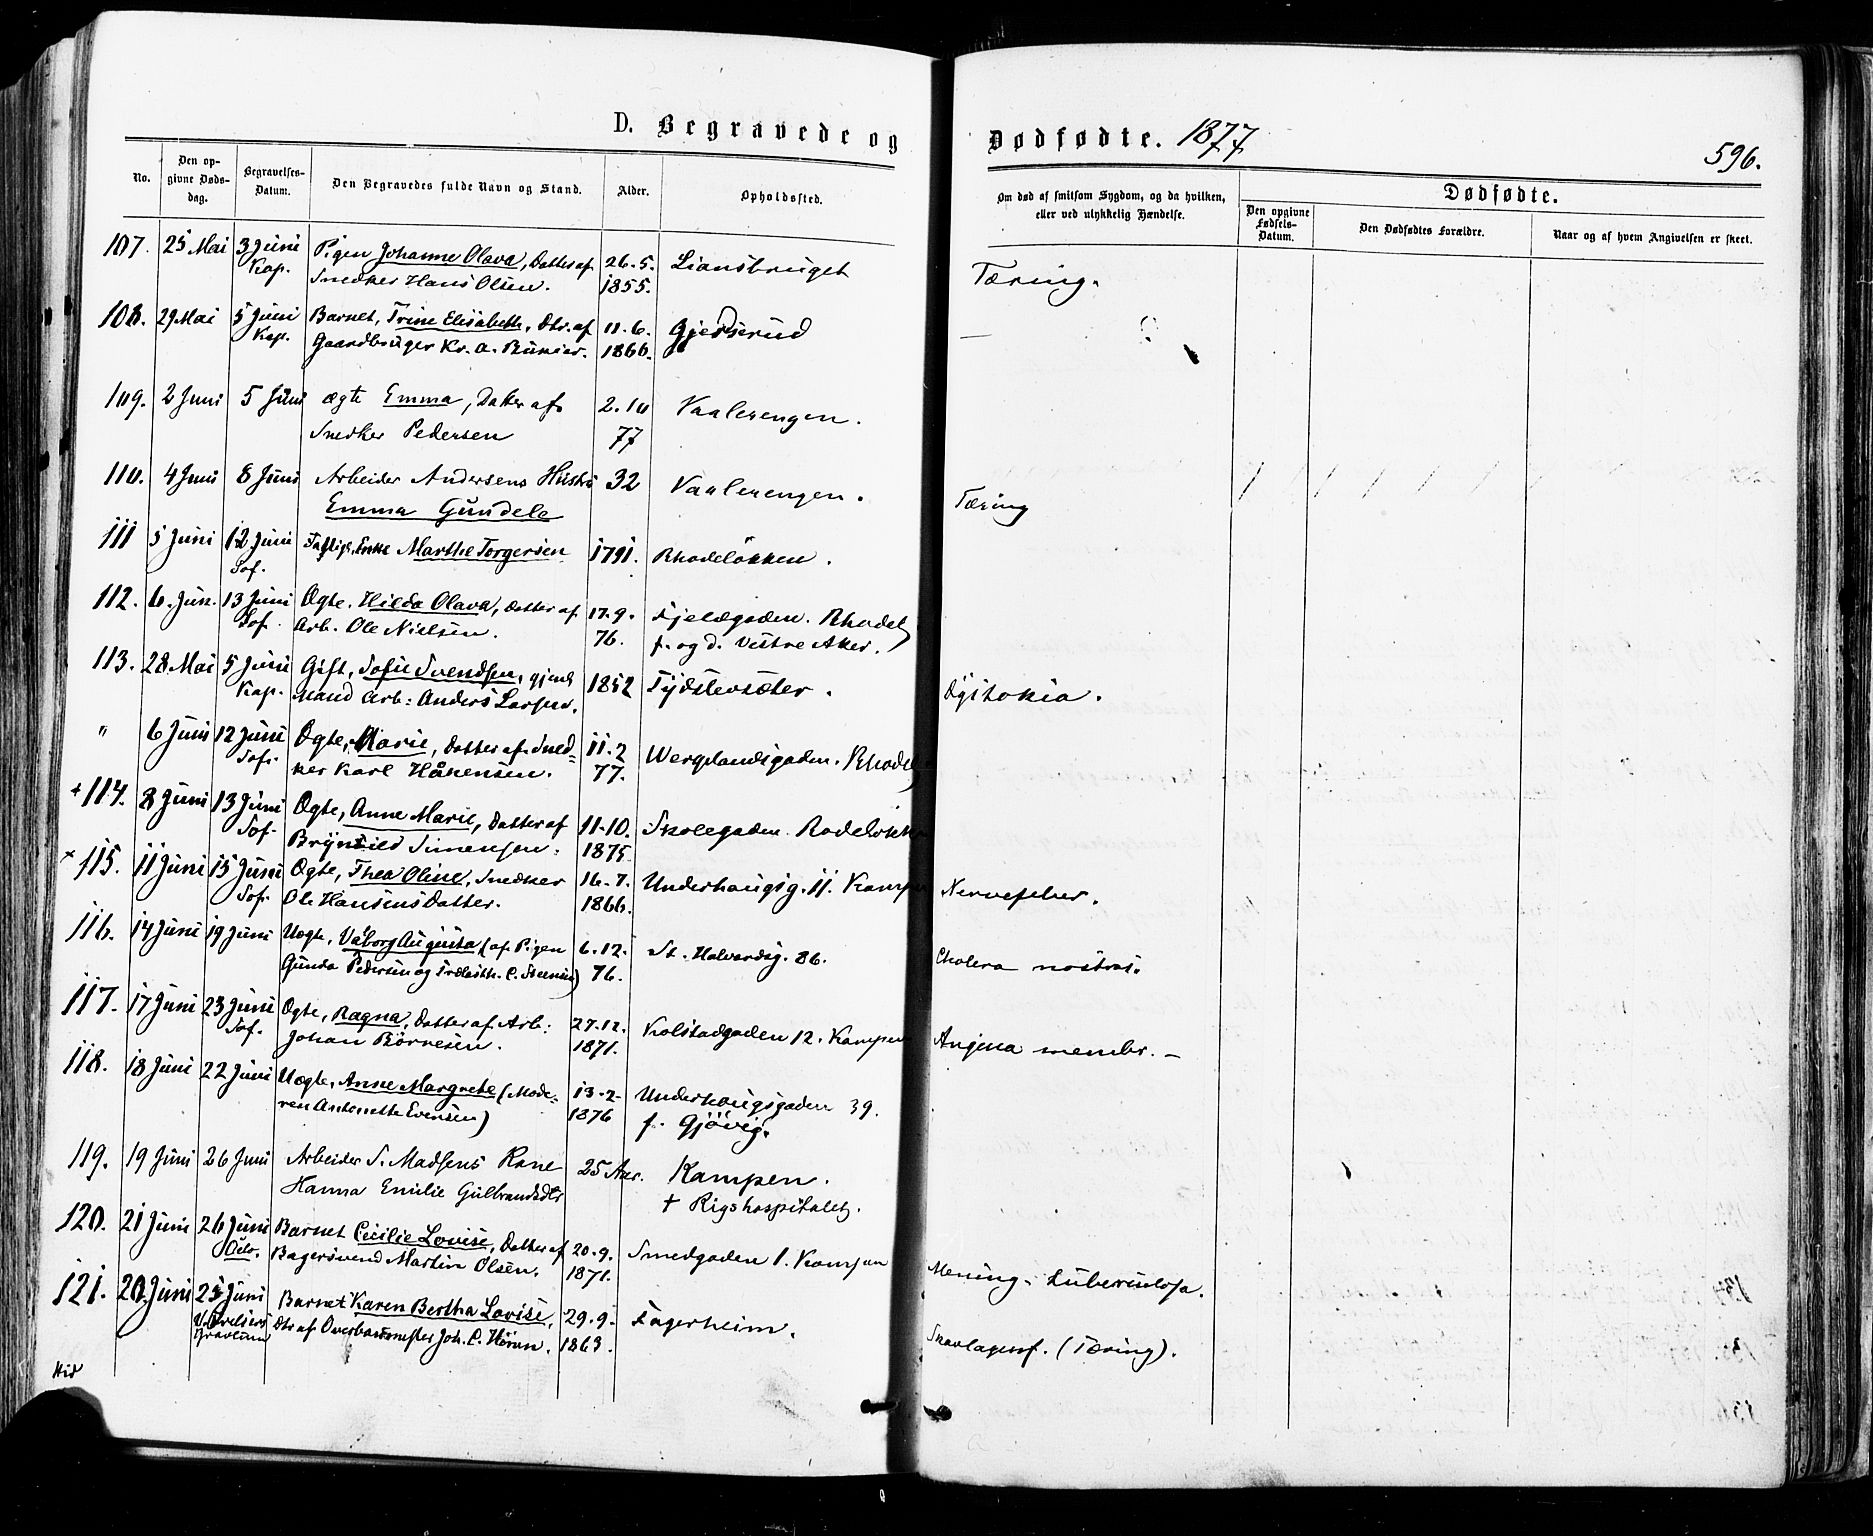 D. Begravede og
Dødfødte. 1877
596.
No.
Den op-
givne Døds-
dag.
Begravelses-
Datum.
Den Begravedes fulde Navn og Stand.
Alder.
Opholdssted.
Om død af smitsom Sygdom, og da hvilken,
eller ved ulykkelig Hændelse.
Dødfødte.
Den opgivne
Fødsels-
Datum.
Den Dødfødtes Forældre.
Naar og af hvem Angivelsen er skeet.
107. 25 Mai 3 Juni Pigen Johanne Olava, Datter af 26.5. Liansbruget Tæring.
Kap. Snedker Hans Olsen. 1855.
108. 29 Mai 5 Juni Barnet, Trine Elisabeth, Dtr. af 11.6. Gjedserud —
Kap. Gaardbruger Kr. A. 1866.
109. 2 Juni 5 Juni ægte Emma, Datter af 2.10 Vaalerengen.
Snedker Pedersen 77
110. 4 Juni 8 Juni Arbeider Andersens Hustru 32 Vaalerengen. Tæring
Emma Gundele
111 5 Juni 12 Juni Enke Marthe Torgersen 1791. Rhodeløkken.
Sof.
112. 6. Jun. 13 Juni Ægte, Hilda Olava, Datter af 17.9. Fjeldgaden. Rhodel
Sof. Arb. Ole Nielsen. 76. f. og d. Vestre Aker.
113. 28 Mai 5 Juni Gift, Sofie Svendsen, gjenl 1852 Tydslevsæter. Dystokia.
Kap. Mand Arb: Anders Larsen.
" 6 Juni 12 Juni Ægte, Marie, Datter af Sned- 11.2 Wergelandsgaden. Rhodel
Sof. ker Karl Håkensen. 77.
+ 114. 8 Juni 13 Juni Ægte, Anne Marie, Datter af 11-10. Skolegaden. Rodeløkk
Sof. Brynild Simensen. 1875
× 115. 11 Juni 15 Juni Ægte, Thea Oline, Snedker 16.7. Underhaugsg. 11. Kampen Nervefeber.
Sof. Ole Hansens Datter. 1866.
116. 14 Juni 19 Juni Uægte, Valborg Augusta (af Pigen 6.12. St. Halvardsg. 86. Cholera nostras.
Gunda Pedersen og 76.
117. 17 Juni 23 Juni Ægte, Ragna, Datter af Arb: 27.12. Kolstadgaden 12. Kampen Angina membr. —
Sof. Johan Börresen. 1871.
118. 18 Juni 22 Juni Uægte, Anne Margrete (Mode- 13-2- Underhaugsgaden 39.
ren Antonette Evensen) 1876 f. Gjövig.
119. 19 Juni 26 Juni Arbeider S. Madsens Kone 25 Aar. Kampen.
Hanna Emilie Gulbrandsdtr † Rigshospitalet.
120. 21 Juni 26 Juni Barnet Cecilie Lovise, Datter af 20.9. Smedgaden 1. Kampen Mening. tuberculosa.
Oslo. Bagersvend Martin Olsen. 1871.
121. 20 Juni 25 Juni Barnet Karen Bertha Lovise, 29.9. Fagerheim. Skarlagensf. (Tæring).
V. Frelsers Dtr af Joh. C. 1863.
Gravlund